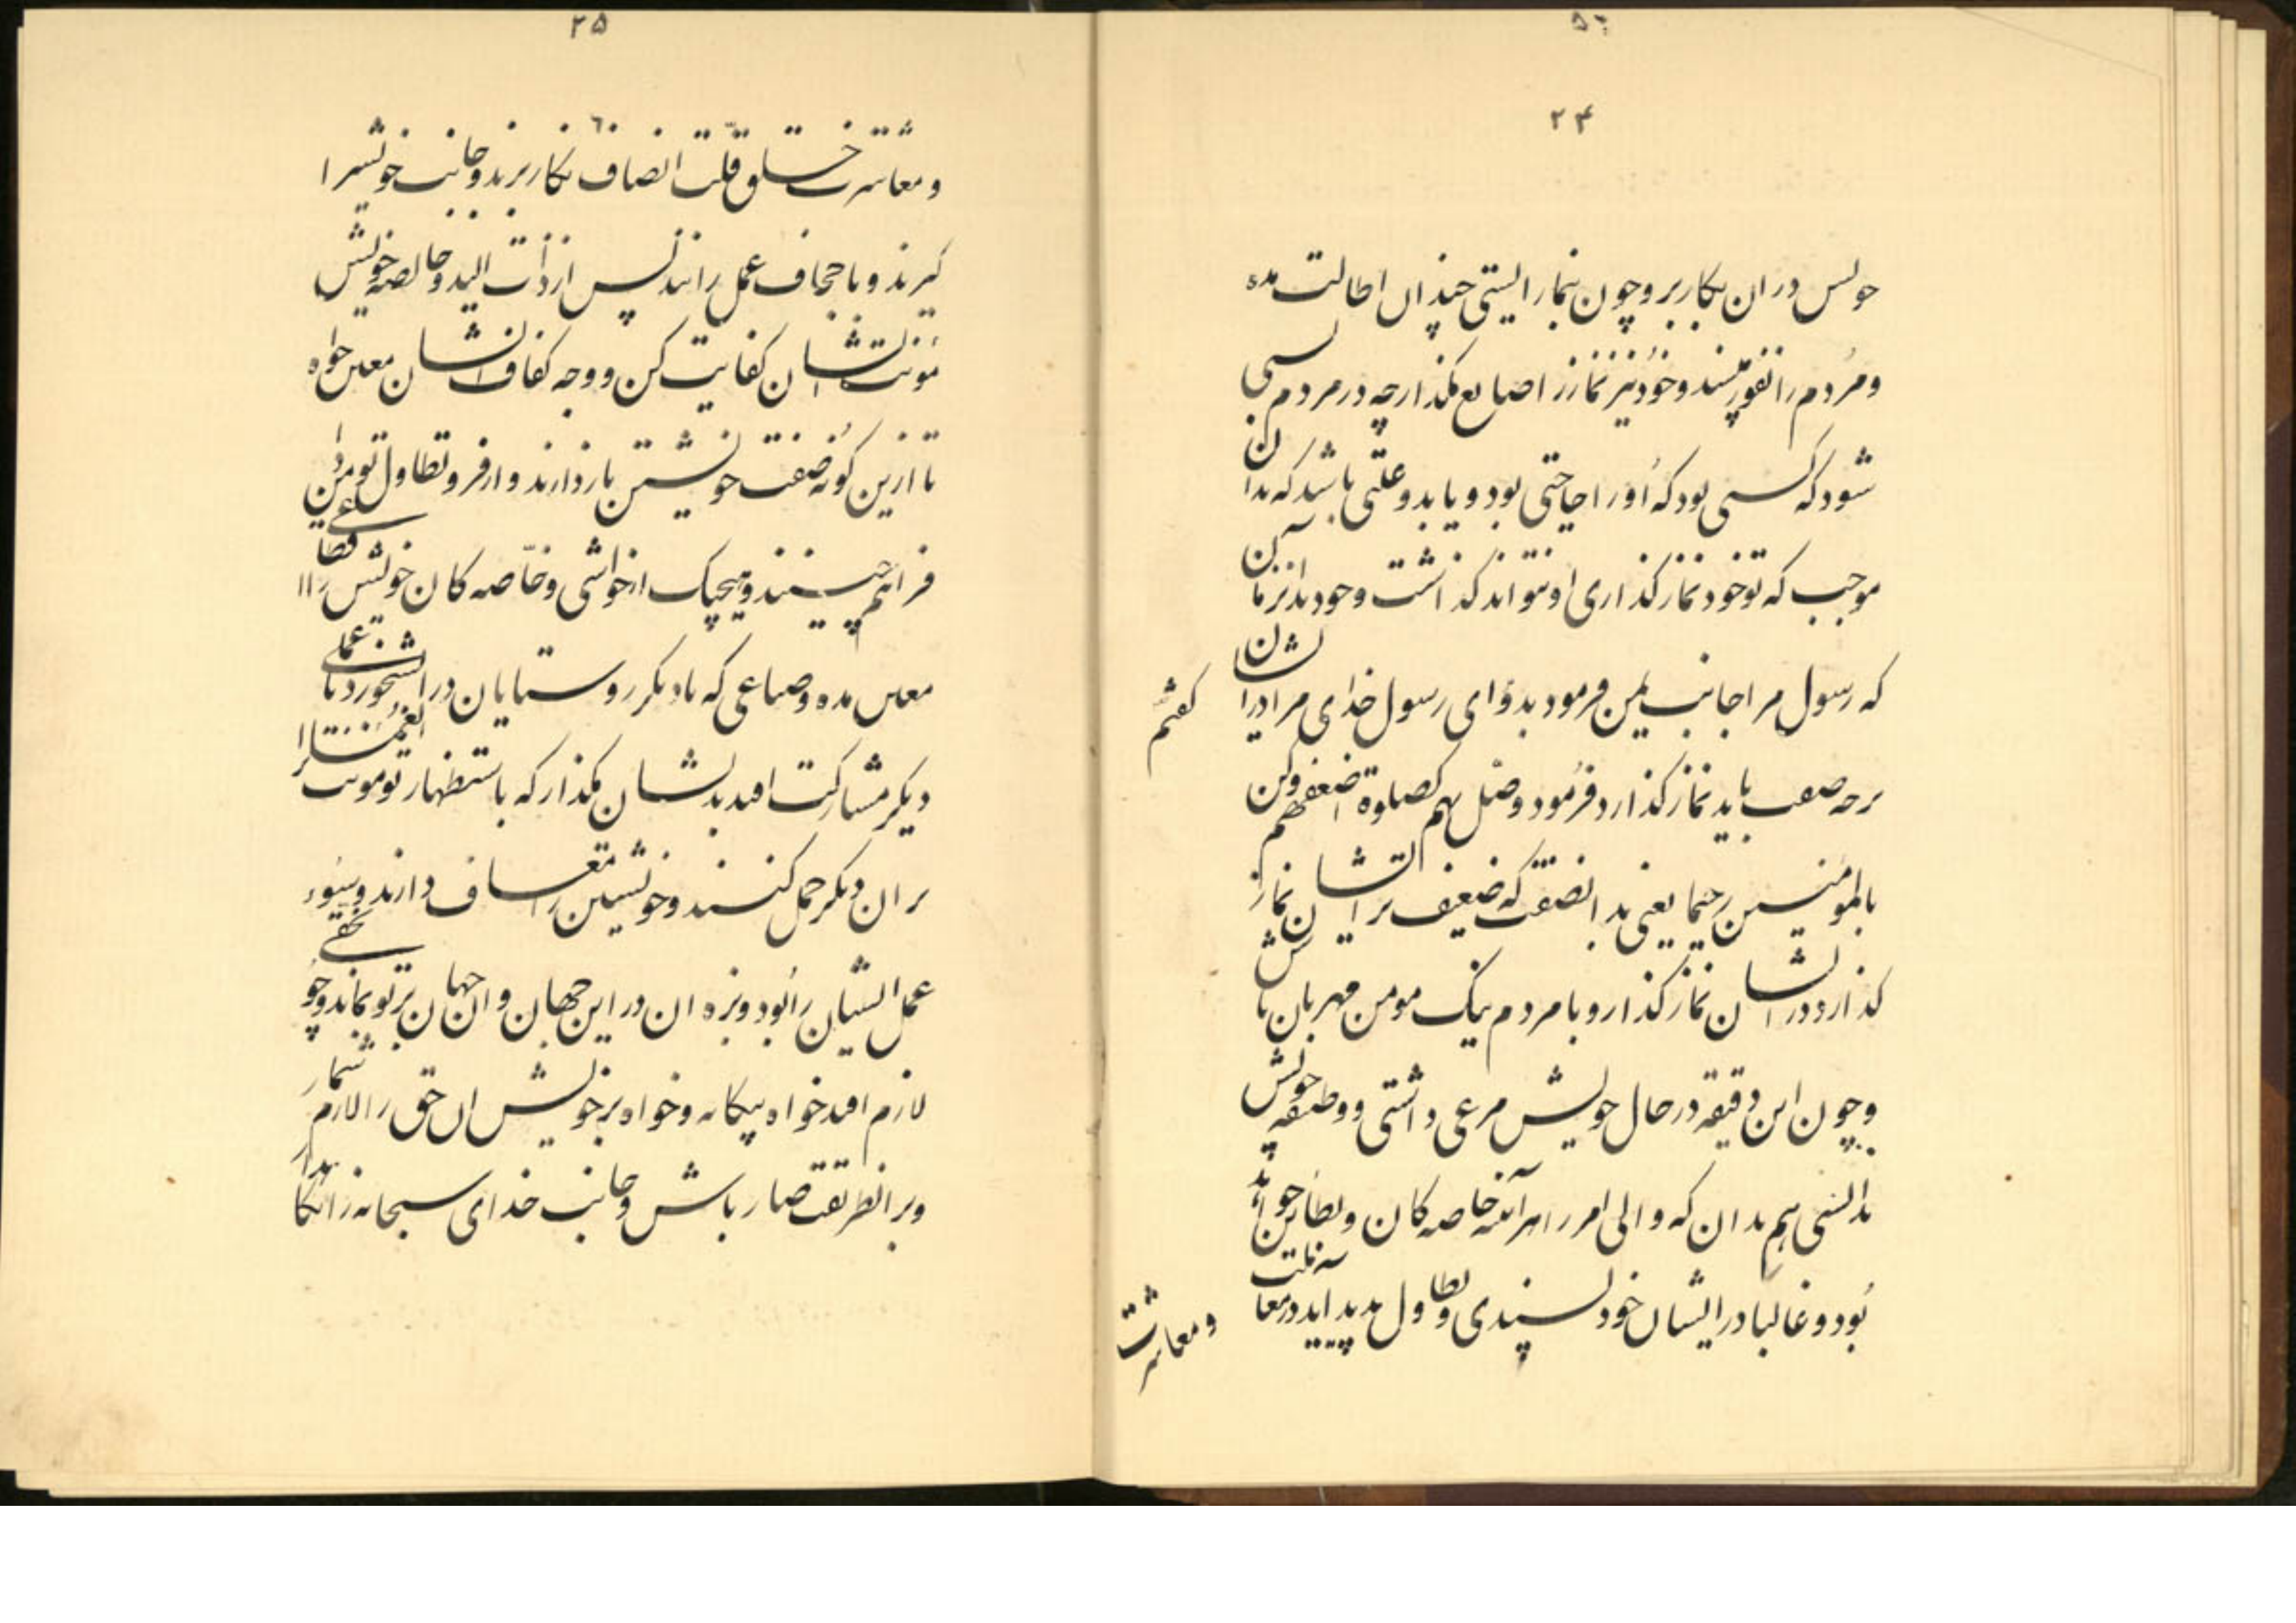 ۲۴
خویش در ان بکار بر و چون بنماز ایستی چندان اطالت مده
و مردم را نفور مپسند و خود نیز نماز را ضایع مگذار چه در مردم بسی
شود که کسی بود که او را حاجتی بود و یا بدو علتی باشد که بدان
موجب که تو خود نماز گذاری او نتواند گذاشت و خود بدان زمان
که رسول مرا جانب یمن فرمود بدو ای رسول خدای مرا در ایشان
گفتم
بر چه صفت باید نماز گذارد فرمود وصل بهم کصلوة اضعفهم وکن
بالمومنین رحیما یعنی بدانصفت که ضعیف تر ایشان نماز
گذارد در ایشان نماز گذار و با مردم نیک مومن مهربان باش
و چون این دقیقه در حال خویش مرعی داشتی و وظیفه خویش
بدانستی هم بدان که والی امر را هر آینه خاصه کان و بطاین چند
بود و غالبا در ایشان خود پسندی و تطاول پدید اید در معاملت
و معاشرت
۲۵
و معاشرت خلق قلت انصاف بکار برند و جانب خویش را
گیرند و باجحاف عمل رانند پس از ذات الید و خالصه خویش
مؤنت ایشان کفایت کن و وجه کفاف ایشان معین خواه
تا ازین گونه صفت خویشتن باز دارند و از فر و تطاول تو مردان
فراهم چینند و هیچیک از حواشی و خاصه کان خویش را اقطاعی
معین مده و ضیاعی که با دیگر روستایان در ابشخور و یا عملی
دیگر مشارکت افتد بدیشان مگذار که باستظهار تو مونت
بران دیگر حمل کنند و خویشتن را معاف دارند و سوء
عمل ایشان را بود و بزه ان در این جهان و ان جهان بر تو بماند و چو حقی
لازم افتد خواه بیگانه و خواه بر خویش ان حق را لازم شمار
و بر انطریقت صابر باش و جانب خدای سبحانه را نگاه بدار